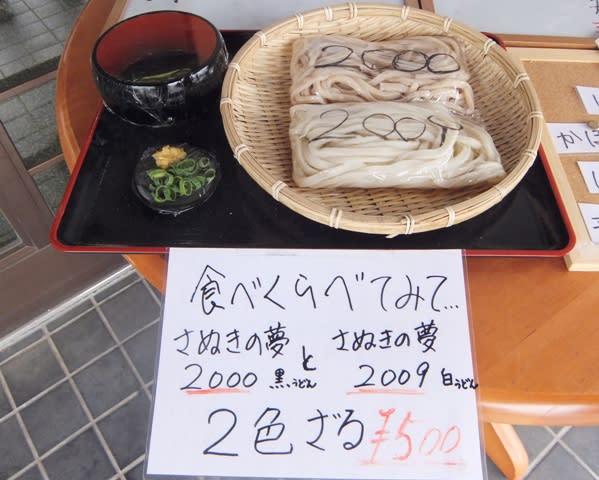 2000
2009
食べくらべてみて…
さぬきの夢 と さぬきの夢
2000 黒うどん 2009 白うどん
2色ざる ¥500